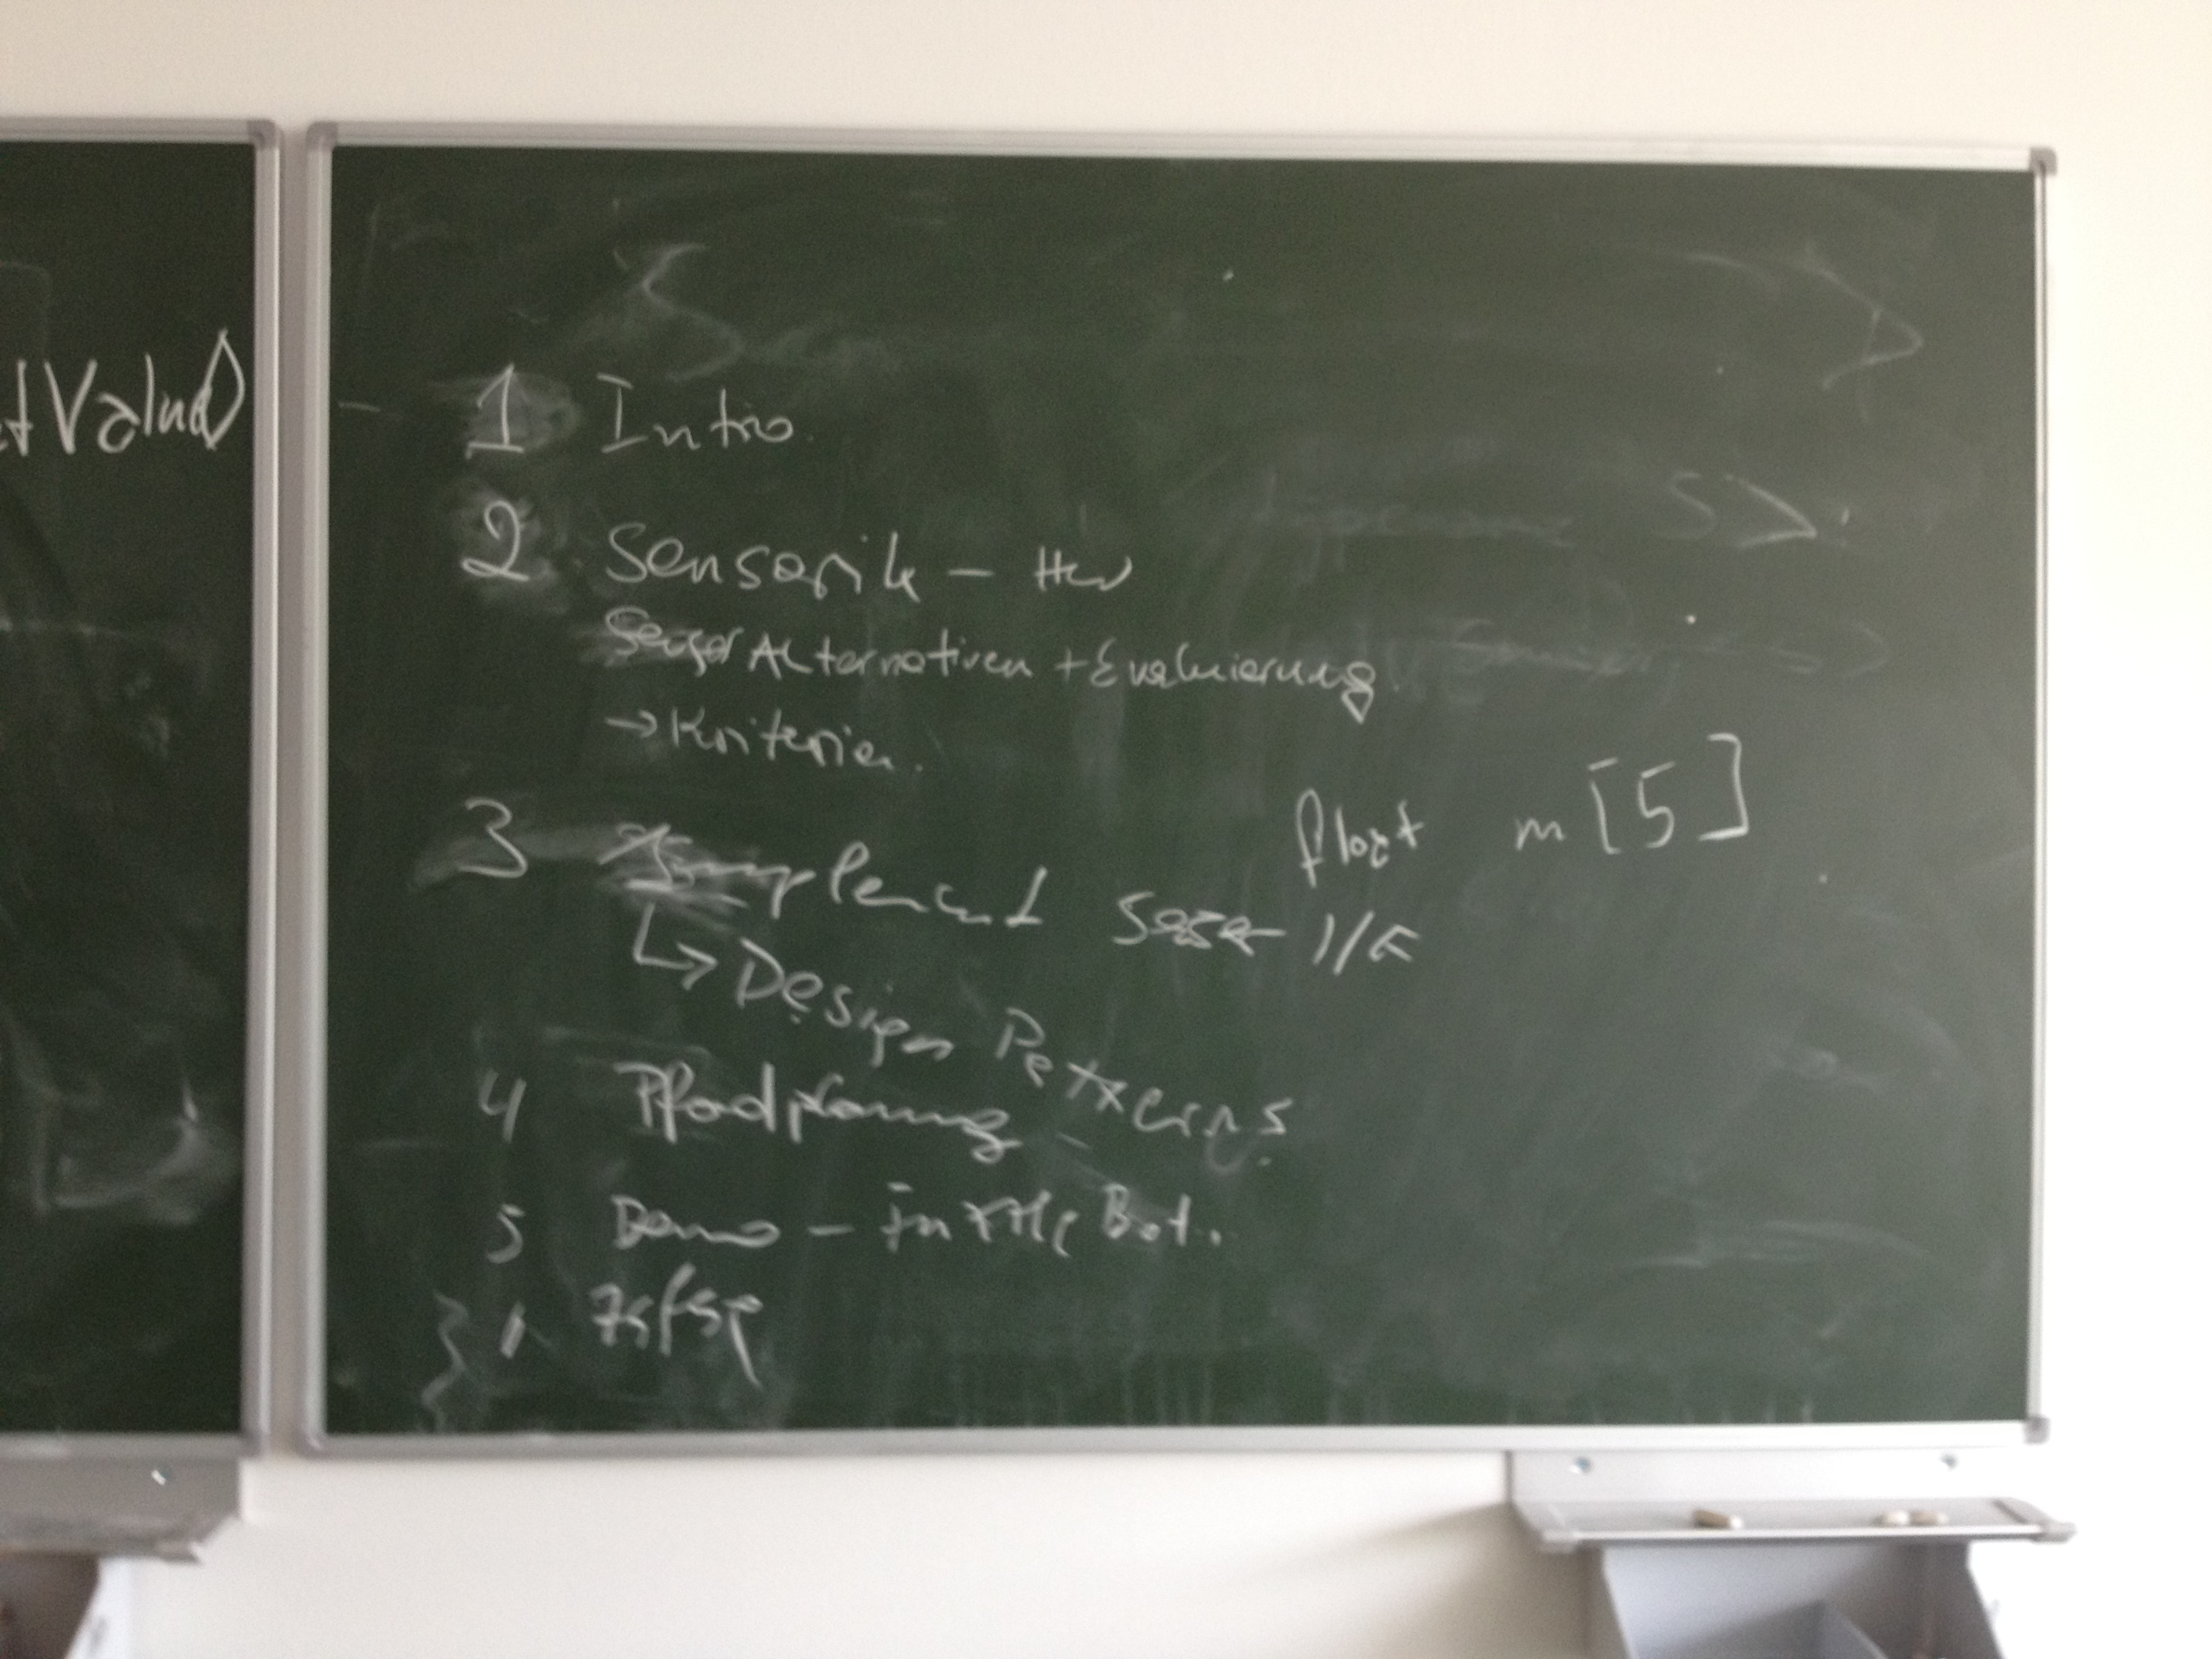 tValue()
1 Intro.
2. Sensorik - HW
Sensor Alternativen + Evaluierung
→ Kriterien.
float m[5]
3 Implement Sensor I/F
↳ Design Patterns
4 Pfadplanung
5 Demo - Bot.
Zsfsg